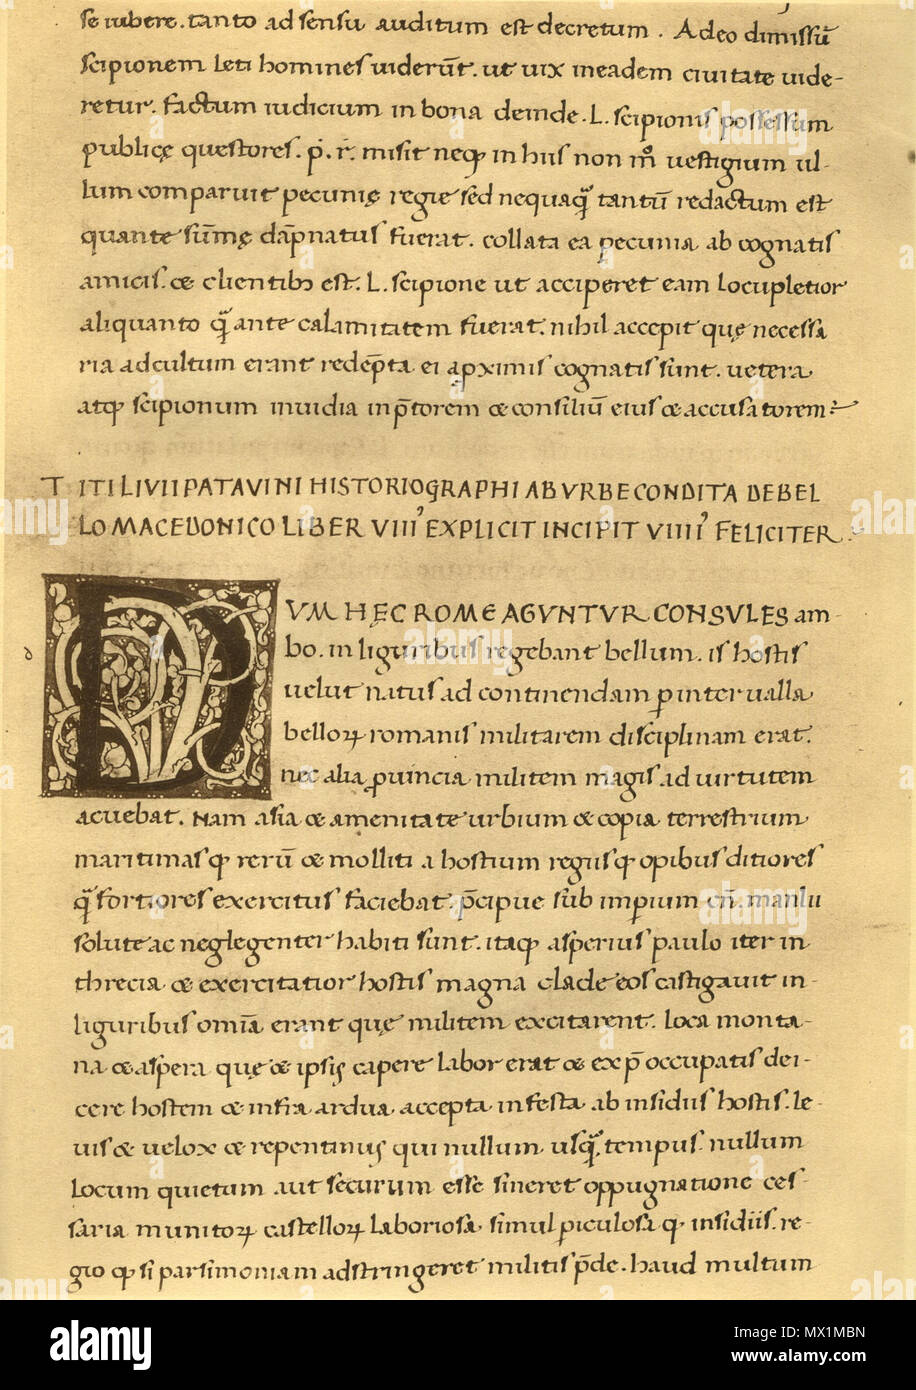 se iubere. tanto ad sensu auditum est decretum. Adeo dimissū
scipionem leti homines uiderūt. ut uix in eadem ciuitate uide-
retur. factum iudicium in bona deinde. L. scipionis possessum
publicę questores. p. r. misit neqꝫ in hiis non mº uestigium ul-
lum comparuit pecunię regie sed nequaqͣ tantū redactum est
quante sūmę dāpnatus fuerat. collata ea pecunia ab cognatis
amicis. & clientibꝫ est. L. scipione ut acciperet eam locupletior
aliquanto qͣ ante calamitatem fuerat. nihil accepit quę necessa
ria ad cultum erant redēpta ei a ꝓximis cognatis sunt. uetera
atqꝫ scipionum inuidia in p̄torem & consiliū eius & accusatorem
TITI LIVII PATAVINI HISTORIOGRAPHI AB VRBE CONDITA DE BEL
LO MACEDONICO LIBER VIII EXPLICIT INCIPIT VIIII FELICITER
d
DVM HĘC ROME AGVNTVR CONSVLES am-
bo. in liguribus regebant bellum. is hostis
uelut natus ad continendam ꝑ interualla
belloꝝ romanis militarem disciplinam erat.
nec alia ꝓuincia militem magis ad uirtutem
acuebat. Nam asia & amenitate urbium & copia terrestrium
maritimasqꝫ rerū & molliti a hostium regiisqꝫ opibus ditiores
qͣ fortiores exercitus faciebat. p̄cipue sub imꝑium cn̄. manlii
solute ac neglegenter habiti sunt. itaqꝫ asperius paulo iter in
threcia & exercitatior hostis magna clade eos castigauit in-
liguribus omīa erant quę militem excitarent. loca monta-
na & aspera quę & ipsis capere labor erat & ex p̄occupatis dei-
cere hostem & infra ardua accepta infesta ab insidiis hostis. le-
uis & uelox & repentinus qui nullum usqͣ tempus nullum
locum quietum aut securum esse sineret oppugnatione ces-
saria munitoꝝ castelloꝝ laboriosa simul ꝑiculosa qꝫ insidiis. re-
gio qꝫ si parsimoniam adstringeret militis p̄de. haud multum
alamy
alamy
Image ID: MX1MBN
www.alamy.com